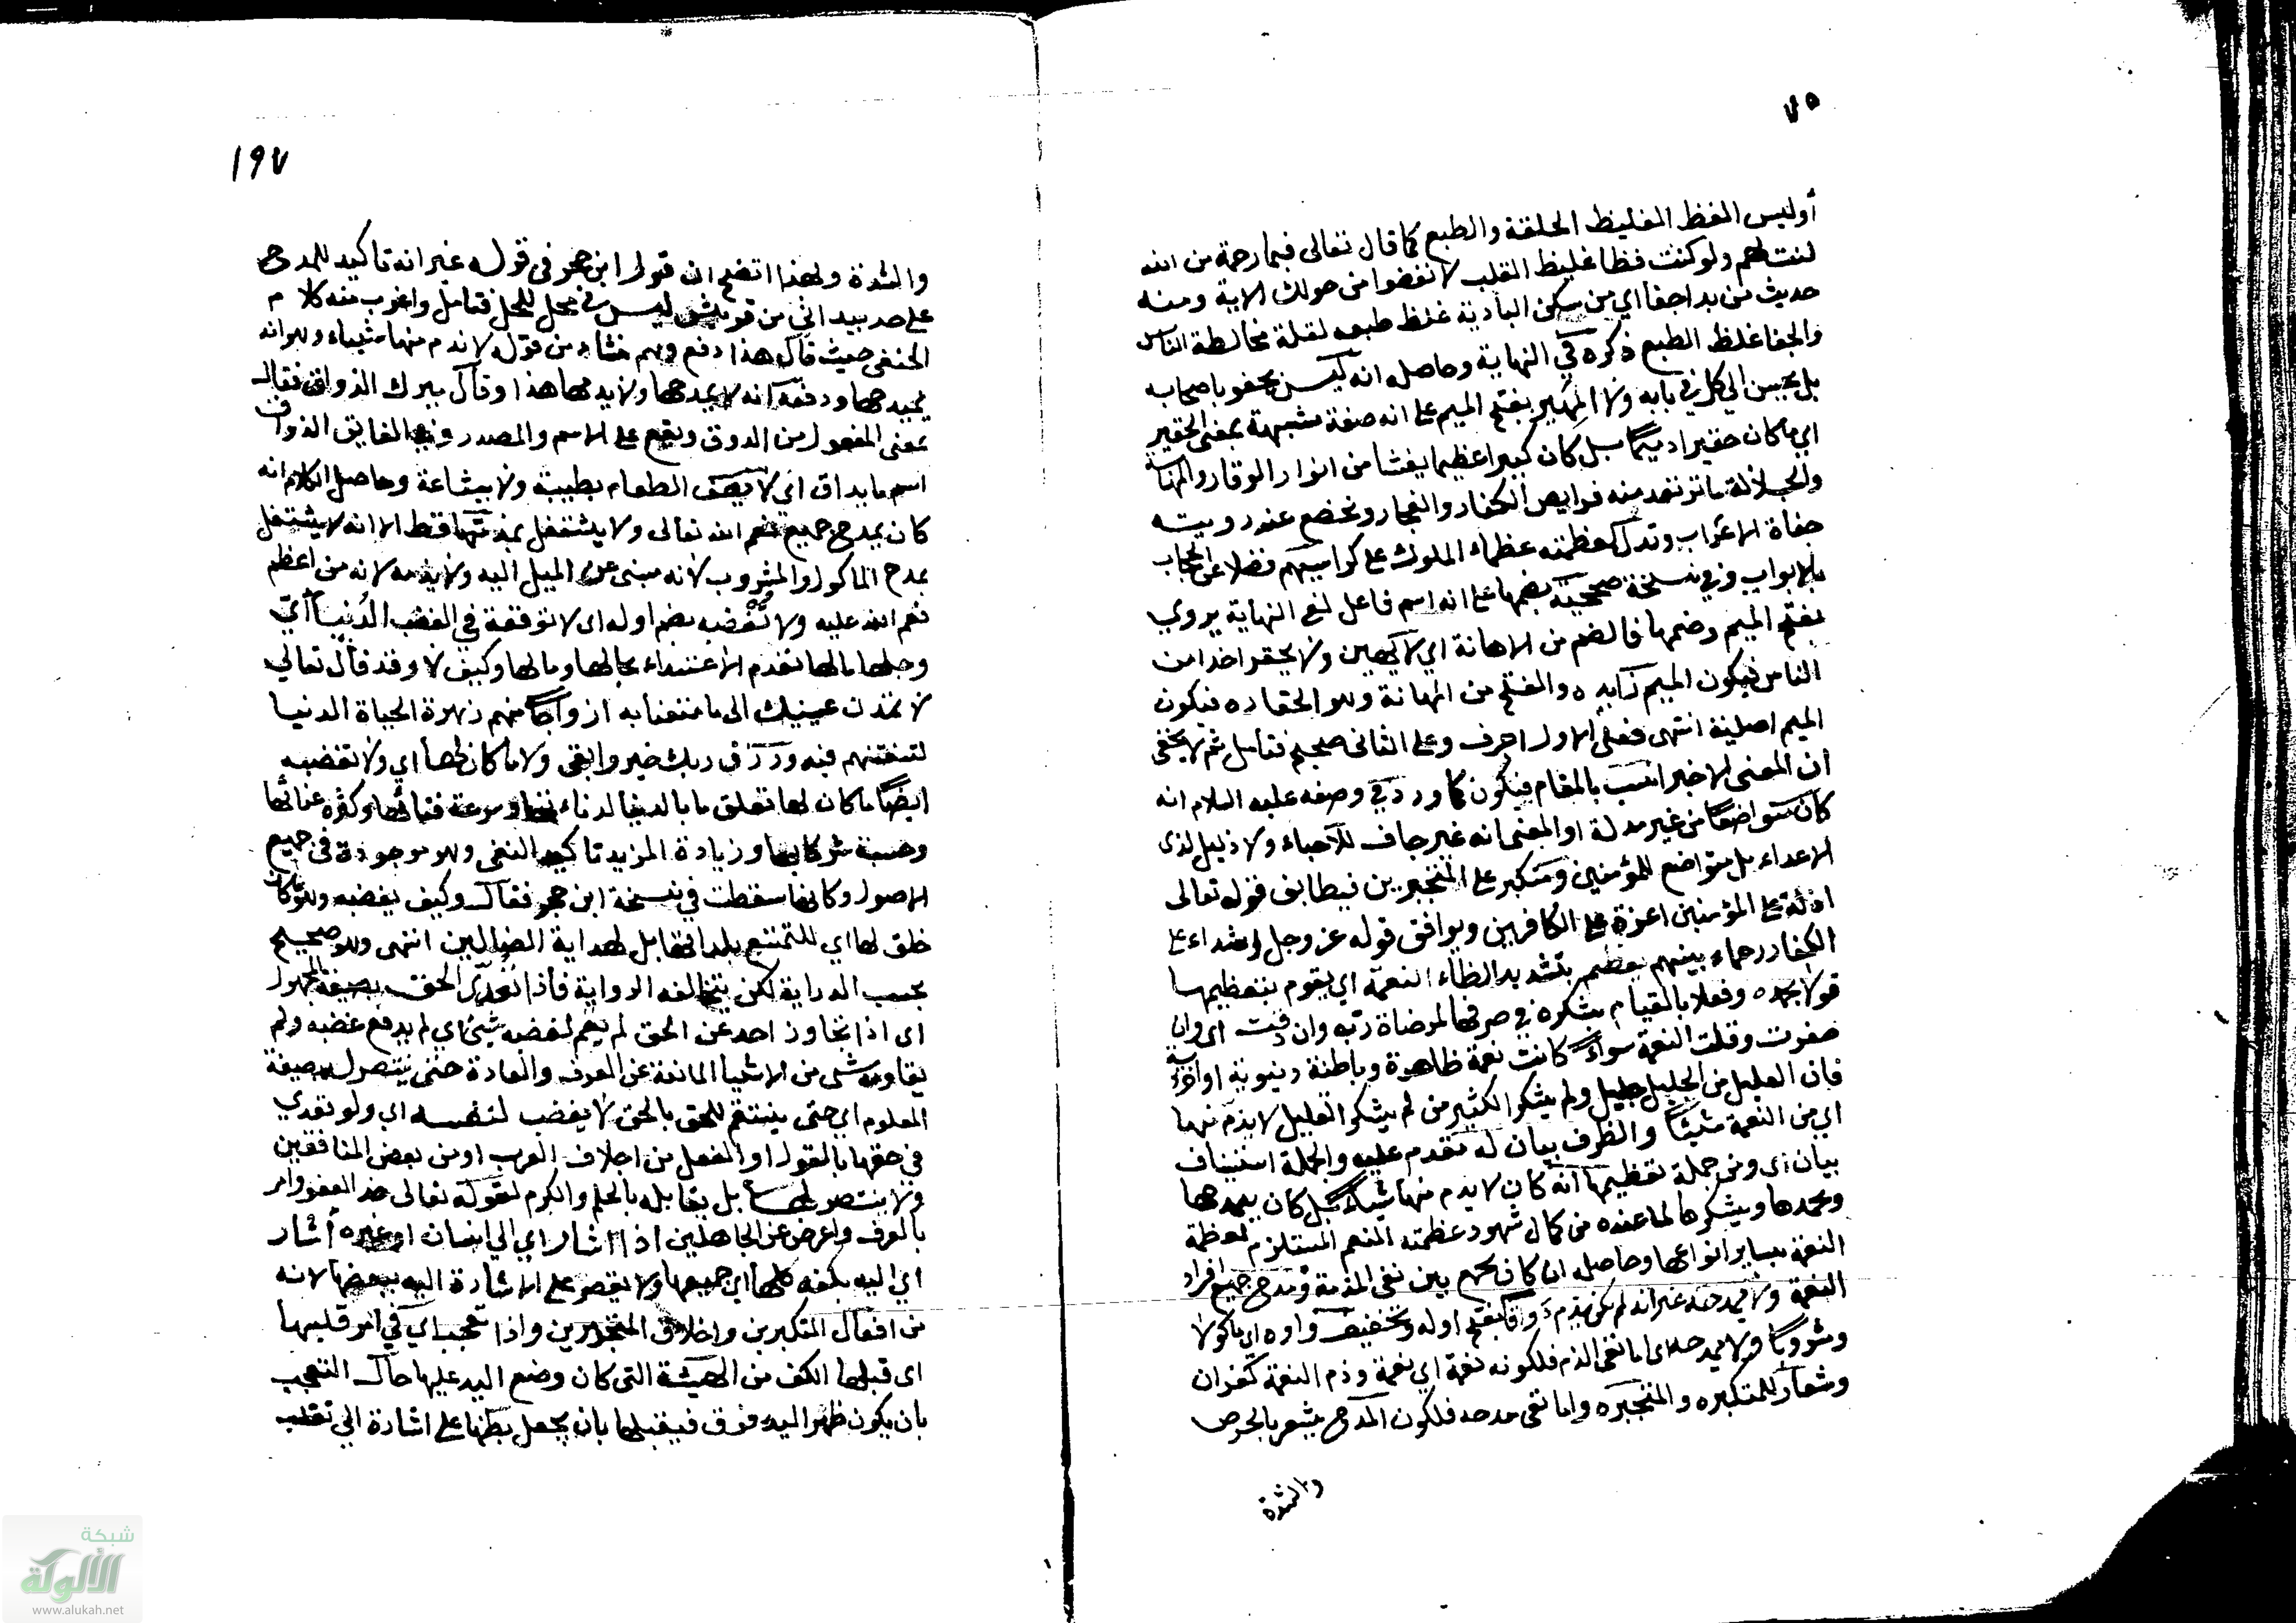 ٧٥
أوليس الفظ الغليظ الخلقة والطبع كما قال تعالى فبما رحمة من الله
لنت لهم ولو كنت فظا غليظ القلب لا نفضوا من حولك الاية ومنه
حديث من بدا جفا اي من سكن البادية غلظ طبعه لقلة مخالطة الناس
والجفا غلظ الطبع ذكره في النهاية وحاصله انه ليس يجفو باصحابه
بل يحسن الي كل في بابه ولا المهين بفتح الميم على انه صفة مشبهة بمعنى الحقير
اي ما كان حقيرا دميما بل كان كبيرا عظيما يغشا من انوار الوقار والمهابة
والجلالة ما ترتعد منه فرايص الكفار والفجار وتخضع عند رويته
جفاة الاعراب وتذل لعظمته عظماء الملوك على كراسيهم فضلا عن الحجاب
بالابواب وفي نسخة صحيحة بضمها على انه اسم فاعل ففي النهاية يروي
بفتح الميم وضمها فالضم من الاهانة اي لا يهين ولا يحقر احدا من
الناس فيكون الميم زايده والفتح من المهانة وهو الحقاره فيكون
الميم اصلية انتهى فعلى الاول اجوف وعلى الثانى صحيح فتامل ثم لا يخفى
ان المعنى الاخير انسب بالمقام فيكون كما ورد في وصفه عليه السلام انه
كان متواضعا من غير مذلة او المعنى انه غير جاف للاحباء ولا ذليل لدى
الاعداء بل متواضع للمؤمنين ومتكبر على المتجبرين فيطابق قوله تعالى
اذلة على المؤمنين اعزة على الكافرين ويوافق قوله عز وجل اشداء على
الكفار رحماء بينهم يعظم بتشديد الظاء النعمة اي يقوم بتعظيمها
قولا بحمده وفعلا بالقيام بشكره في صرفها لمرضاة ربه وان دقت اى وان
صغرت وقلت النعمة سواء كانت نعمة ظاهرة وباطنة دينوية او اخروية
فان القليل من الجليل جليل ولم يشكر الكثير من لم يشكر القليل لا يذم منها
اي من النعمة شيئا والظرف بيان له تقدم عليه والجملة استيناف
بيان اى ومن جملة تعظيمها انه كان لا يذم منها شيئا بل كان يمدحها
ويحمدها ويشكرها لما عنده من كمال شهود عظمة المنعم المستلزم لعظمة
النعمة بساير انواعها وحاصله ان كان يجمع بين نفى المذمة ومدح جميع افراد
النعمة ولا يمدحه غير انه لم يكن يذم ذواقا بفتح اوله وتخفيف واوه اى ماكولا
ومشروبا ولا يمدحه اى اما نفى الذم فلكونه نعمة اي نعمة وذم النعمة كفران
وشعار للمتكبره والمتجبره واما نفى مدحه فلكون المدح يشعر بالحرص
والشدة
١٩٧
والشدة ولهذا اتضح ان قول ابن حجر فى قوله غير انه تاكيد للمدح
على حد بيد اني من قريش ليس في محل للحل فتامل واغرب منه كلام
الحنفي حيث قال هذا دفع وهم نشاء من قوله لا يذم منها شيئاء وهو انه
يمدحها ودفعه انه لا يمدحها ولا يذمها هذا وقال ميرك الذواق فعال
بمعنى المفعول من الذوق ويقع على الاسم والمصدر وفي الفايق الذواق
اسم ما يذاق اى لا يصف الطعام بطيبة ولا بشاعة وحاصل الكلام انه
كان يمدح جميع نعم الله تعالى ولا يشتغل بمذمتها قط الا انه لا يشتغل
بمدح الماكول والمشروب لانه مبنى على الميل اليه ولا يذمه لانه من اعظم
نعم الله عليه ولا تغضبه بضم اوله اى لا توقعه في الغضب الدنيا اي
وجاهها ومالها لعدم الاعتداء بحالها ومالها وكيف لا وقد قال تعالي
لا تمدن عينيك الى ما متعنا به ازواجا منهم زهرة الحياة الدنيا
لنفتنهم فيه ورزق ربك خير وابقى ولا ما كان لها اي ولا تغضبه
ايضا ما كان لها تعلق ما بالدنيا لدناءتها وسرعة فنائها وكثرة عنائها
وخسة شركايها وزيادة لا لمزيد تاكيد النفى وهو موجودة في جميع
الاصول وكانها سقطت في نسخة ابن حجر فقال وكيف يغضبه وهو ما كان
خلق لها اي للتمتع بلذاتها بل لهداية الضالين انتهى وهو صحيح
بحسب الدراية لكن يتخالفه الرواية فاذا تعدى الحق بصيغة المجهول
اى اذا تجاوز احد عن الحق لم يقم لغضبه شيئ اي لم يدفع غضبه ولم
يقاومه شى من الاشيا المانعة عن العرف والعادة حتى ينتصر له بصيغة
المعلوم اي حتى ينتقم للحق بالحق لا يغضب لنفسه اى ولو تعدي
في حقها بالقول او الفعل من اجلاف العرب او من بعض المنافقين
ولا ينتصر لها بل يقابله بالحلم والكرم لقوله تعالى خذ العفو وامر
بالعرف واعرض عن الجاهلين اذا اشار اي الي انسان او غيره أشار
اي اليه بكفه كلها اي جميعها ولا يقصر على الاشارة اليه ببعضها لانه
من افعال المتكبرين واخلاق المتجبرين واذا تعجب اي في امر قلبها
اى قبلها الكف من الهيئة التى كان وضع اليد عليها حال التعجب
بان يكون ظهر اليد فوق فيقبلها بان يجعل بطنها على اشارة الي تقلب
شبكة
الألوكة
www.alukah.net